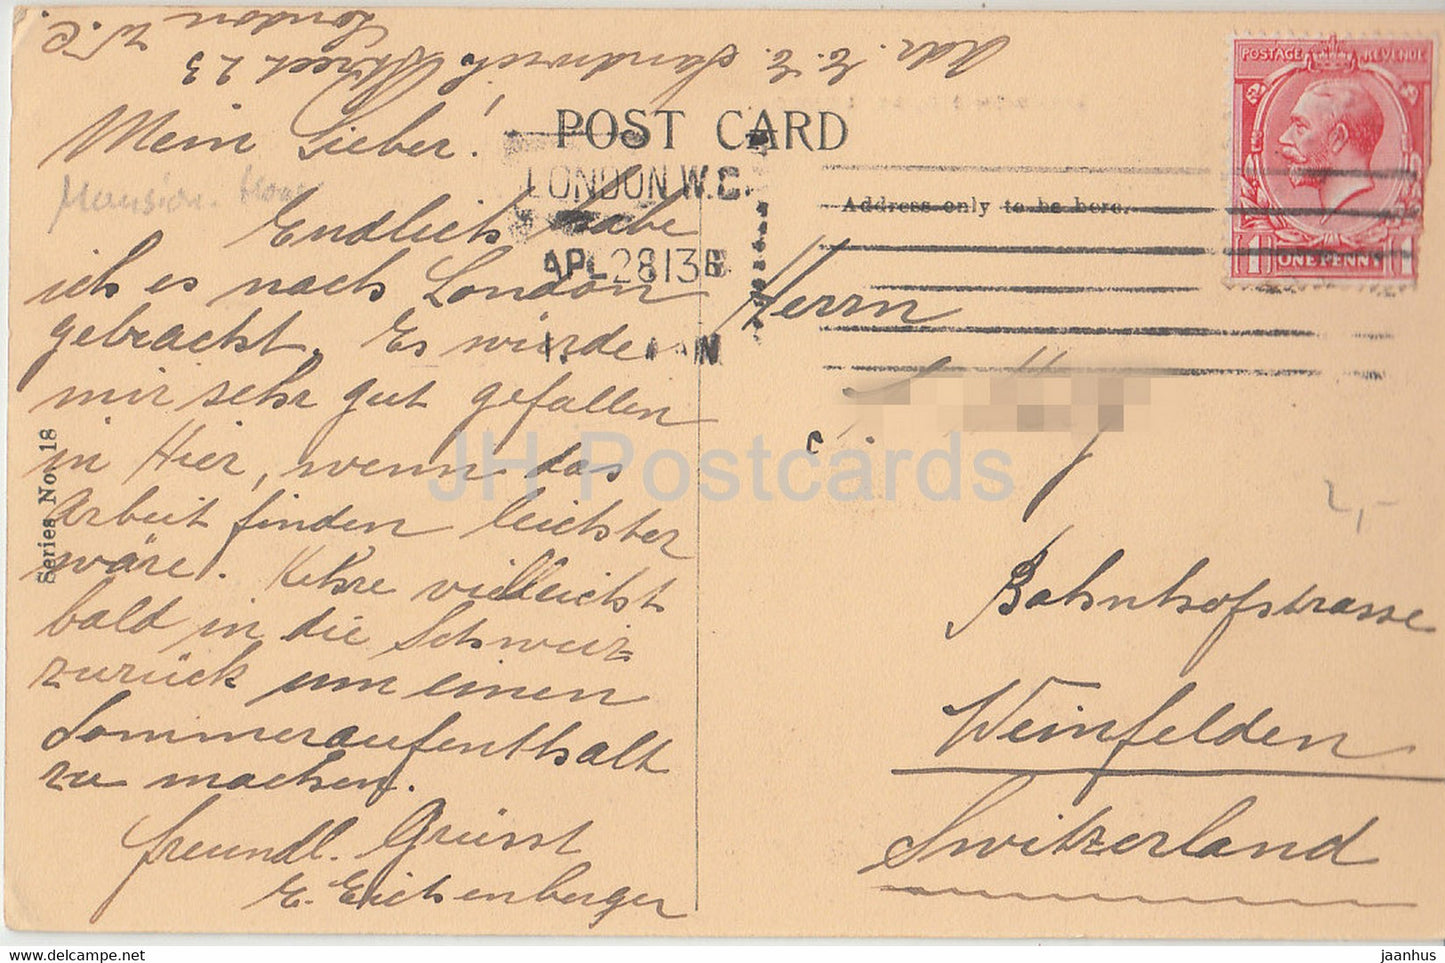 Adr. E. E. Sandwich Street 23
London
W. C.
POST CARD
Mein Lieber!
Mansion House
LONDON W.C.
APL 28 13
POSTAGE REVENUE
1 ONE PENNY 1
Address only to be here.
Endlich habe
ich es nach London
gebracht. Es würde
mir sehr gut gefallen
in Hier, wenn das
Arbeit finden leichter
wäre. Kehre vielleicht
bald in die Schweiz
zurück um einen
Sommeraufenthalt
zu machen.
freundl. Grüsst
E. Eichenberger
Series No. 18
Herrn
Bahnhofstrasse
Weinfelden
Switzerland
2,-
JH Postcards
www.delcampe.net
jaanhus